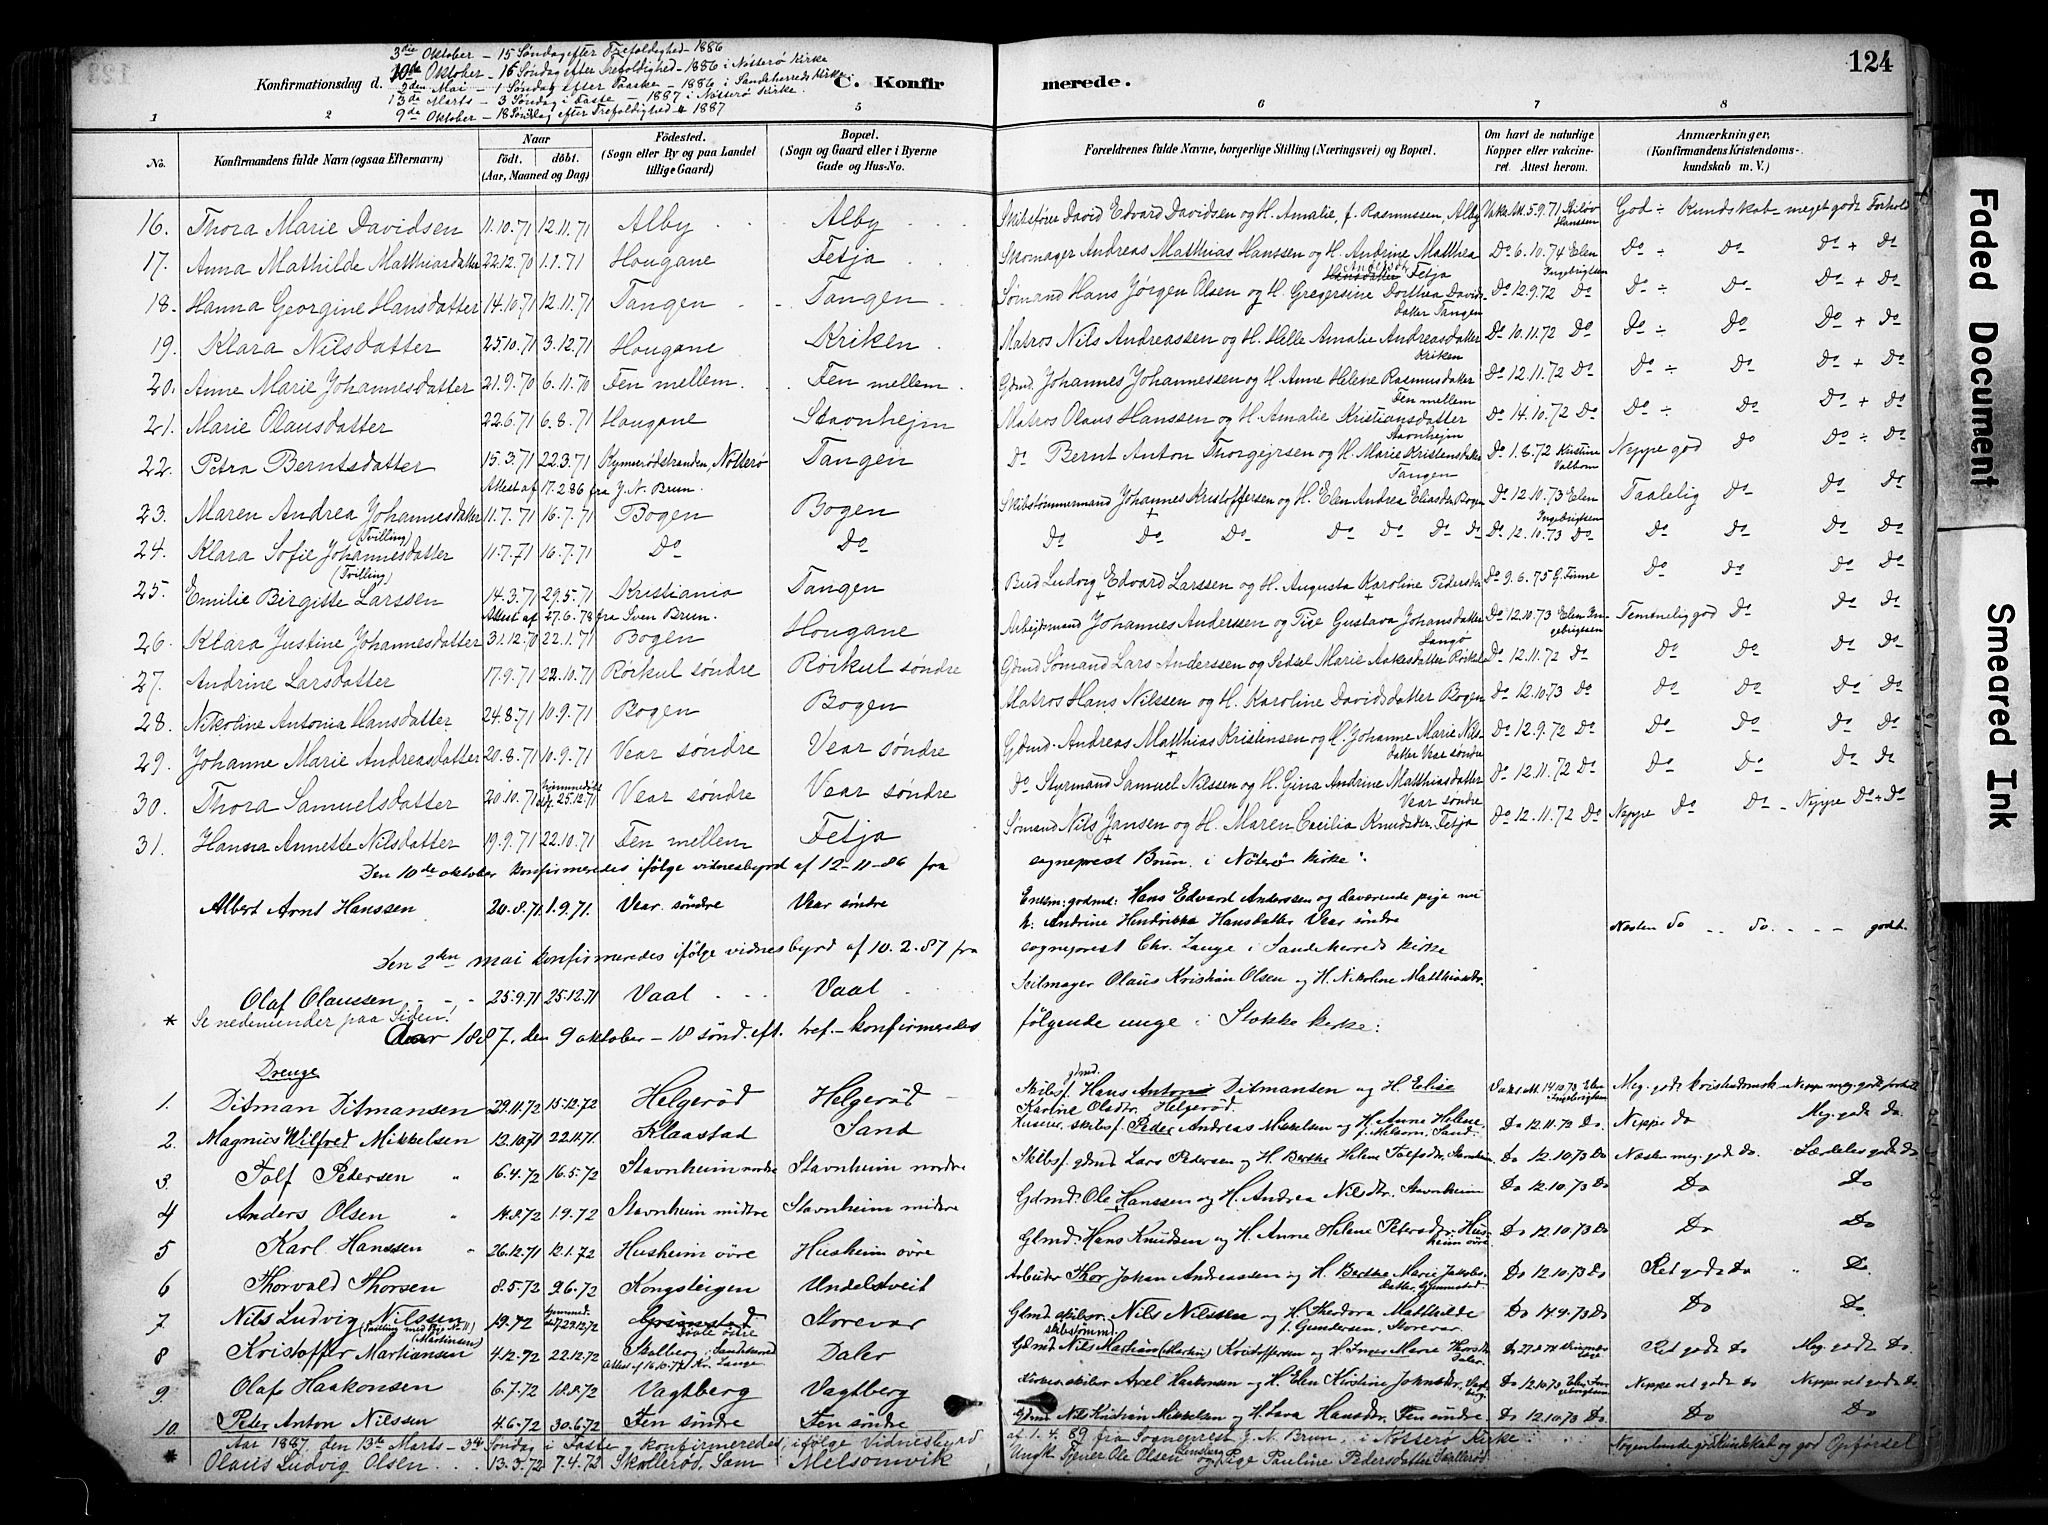 124
Konfirmationsdag d. 3die Oktober – 15 Søndag efter Trefoldighed – 1886
10de Oktober – 16 Søndag efter Trefoldighed – 1886 i Nøtterø Kirke
2den Mai – 1 Søndag efter Paaske – 1886 i Sandeherreds Kirke
13de Marts – 3 Søndag i Faste – 1887 i Nøtterø Kirke.
9de Oktober – 18 Søndag efter Trefoldighed – 1887
C. Konfirmerede.
1 2 3 4 5 6 7 8
No. Konfirmandens fulde Navn (ogsaa Efternavn) Naar født. døbt. (Aar, Maaned og Dag) Fødested. (Sogn eller By og paa Landet tillige Gaard) Bopæl. (Sogn og Gaard eller i Byerne Gade og Hus-No. Forældrenes fulde Navne, borgerlige Stilling (Næringsvei) og Bopæl. Om havt de naturlige Kopper eller vakcineret. Attest herom. Anmærkninger, (Konfirmandens Kristendomskundskab m. V.)
16. Thora Marie Davidsen 11.10.71 12.11.71 Alby Alby Skibsfører David Edvard Davidsen og H. Amalie, f. Rasmussen, Alby Vaks. At. 5.9.71 Hansen God ÷ Kundskab – meget godt Forhold
17. Anna Mathilde Matthiasdatter 22.12.70 1.1.71 Hougane Fetja Skomager Andreas Matthias Hanssen og H. Andrine Matthea Fetja Do 6.10.74 Elen Ingebrigtsen Do ÷ Do Do + Do
18. Hanna Georgine Hansdatter 14.10.71 12.11.71 Tangen Tangen Sømand Hans Jørgen Olsen og H. Gregersine Dorthea Davidsdatter Tangen Do 12.9.72 Do Do ÷ Do Do + Do
19. Klara Nilsdatter 25.10.71 3.12.71 Hougane Kriken Matros Nils Andreassen og H. Helle Amalie Andreasdatter Kriken Do 10.11.72 Do Do ÷ Do Do + Do
20. Anne Marie Johannesdatter 21.9.70 6.11.70 Fen mellem Fen mellem Gdmd. Johannes Johannessen og H. Anne Helene Rasmusdatter Fen mellem Do 12.11.72 Do Do ÷ Do Do + Do
21. Marie Olausdatter 22.6.71 6.8.71 Hougane Stavnhejm Matros Olaus Hanssen og H. Amalie Kristiansdatter Stavnhejm Do 14.10.72 Do Do ÷ Do Do + Do
22. Petra Berntsdatter 15.3.71 22.3.71 Rymerødstranden, Nøtterø Tangen Do Bernt Anton Thorgejrsen og H. Marie Kristensdatter Tangen Do 1.8.72 Kristine Valbom Neppe god Do Do ÷ Do
Attest af 17.2.86 fra J. N. Brun.
23. Maren Andrea Johannesdatter (Tvilling) 11.7.71 16.7.71 Bogen Bogen Skibstømmermand Johannes Kristoffersen og H. Elen Andrea Eliasdtr Bogen Do 12.10.73 Elen Ingebrigtsen Taalelig Do Do Do
24. Klara Sofie Johannesdatter (Tvilling) 11.7.71 16.7.71 Do Do Do Do Do Do Do Do Do Do 12.10.73 Do Do Do Do Do
25. Emilie Birgitte Larssen 14.3.71 29.5.71 Kristiania Tangen Bud Ludvig Edvard Larssen og H. Augusta Karoline Pedersdtr Do 9.6.75 G. Finne Do Do Do Do
Attest af 27.6.78 fra Sven Brun.
26. Klara Justine Johannesdatter 31.12.70 22.1.71 Bogen Hougane Arbejdsmand Johannes Anderssen og Pige Gustava Johansdatter Langø Do 12.10.73 Elen Ingebrigtsen Temmelig god Do Do Do
27. Andrine Larsdatter 17.9.71 22.10.71 Røikul søndre Røikul søndre Gdmd Sømand Lars Anderssen og Sedsel Marie Aakesdatter Røikul Do 12.11.72 Do Do Do Do Do
28. Nikoline Antonia Hansdatter 24.8.71 10.9.71 Bogen Bogen Matros Hans Nilssen og H. Karoline Davidsdatter Bogen Do 12.10.73 Do Do Do Do Do
29. Johanne Marie Andreasdatter 20.8.71 10.9.71 Vear søndre Vear søndre Gdmd. Andreas Matthias Kristensen og H. Johanne Marie Nilsdatter Vear søndre Do 12.9.72 Do Do Do Do Do
30. Thora Samuelsdatter 20.10.71 hjemmedøbt 25.12.71 Vear søndre Vear søndre Do Styrmand Samuel Nilssen og H. Gina Andrine Matthiasdatter Vear søndre Do 12.11.72 Do Do Do Do Do
31. Hanna Annette Nilsdatter 19.9.71 22.10.71 Fen mellem Fetja Sømand Nils Jansen og H. Maren Cecilia Knudsdtr. Fetja Do 12.11.72 Do Neppe Do Do – Neppe Do + Do
Den 10de oktober konfirmeredes ifølge vidnesbyrd af 12-11-86 fra sogneprest Brun i Nøterø kirke:
Albert Arnt Hanssen 20.8.71 1.9.71. Vear søndre Vear søndre Enkem: godmd: Hans Edvard Anderssen og daværende pige nu h: Andrine Hendrikka Hansdatter Vear søndre Næsten do do. godt.
Den 2den mai konfirmeredes ifølge vidnesbyrd af 10.2.87 fra sogneprest Chr. Lange i Sandeherreds kirke
Olaf Olaussen 25.9.71 25.12.71 Vaal Vaal Seilmager Olaus Kristian Olsen og H. Nikoline Matthiasdtr.
* Se nedenunder paa Siden!
Aar 1887, den 9 oktober – 18 sønd. eft. tref. – konfirmeredes følgende unge i Stokke kirke:
Drenge
1. Ditman Ditmansen 29.11.72 15.12.72 Helgerød Helgerød Skibsf. gdmd. Hans Antoni Ditmansen og H. Elise Karine Olsdtr. Helgerød. Vaks. At. 14.10.73 Elen Ingebrigtsen Meg. godt kristendomsk. Neppe meg. godt forhold
2. Magnus Wilfred Mikkelsen 12.10.71 22.11.71. Klaastad Sand Huseier, skibsf. Peder Andreas Mikkelsen og H. Anne Helene, f. Melsom, Sand. Do 12.11.72 Do. Neppe do Meg. godt do.
3 Tolf Pedersen 6.4.72 16.5.72 Stavnheim nordre Stavnheim nordre Skibsf. gdmd Lars Pedersen og H. Berthe Helene Tolfsdtr. Stavnheim Do 12.10.73 Do Næsten meg. godt do. Særdeles godt do
4 Anders Olsen 11.8.72 1.9.72 Stavnheim midtre Stavnheim midtre Gdmd: Ole Hanssen og H. Andrea Nilsdtr. Stavnheim Do 12.10.73 Do Do Do
5 Karl Hanssen 26.12.71 12.1.72 Husheim øvre Husheim øvre Gdmd. Hans Knudsen og H. Anne Helene Petersdtr. Husheim øvre Do 12.10.73 Do Do Do
6 Thorvald Thorsen 8.5.72 9.6.72 Kongsteigen Undelstveit Arbeider Thor Johan Andreassen og H. Berthe Marie Jakobsdatter, Gjennestad. Do 12.10.73 Do Ret godt Do Do.
7. Nils Ludvig Nilssen 1.9.72 29.12.72 Storevar Gdmd skibsr. Nils Nilssen og H. Theodora Mathilde f. Gundersen, Storevar Do 14.9.73 Do Do Do.
8 Kristoffer Martiansen (Martinsen) 4.12.72 22.12.72 Skalberg, Sandeherred Daler Gdmd Nils Martian (Martin) Kristoffersen og H. Inger Marie Thorsdtr Daler. Do 27.8.74 Ret godt Do Meg. godt Do
Attest af 16.10.77 Kr. Lange.
9. Olaf Haakonsen 6.7.72 18.8.72 Vagtberg Vagtberg Axel Haakonsen og H. Elen Kirstine Johnsdtr, Vagtberg. Do 12.10.73 Elen Ingebrigtsen Neppe ret godt Do Neppe ret godt Do
10. Peder Anton Nilssen 4.6.72 30.6.72 Fen søndre Fen søndre Gdmd Nils Kristian Mikkelsen og H. Lava Hansdtr. Fen søndre. Do 12.10.73 Do. Do Do
* Aar 1887, den 13de Marts – 3die Søndag i Faste, konfirmeredes, ifølge Vidnesbyrd af 1.4.89 fra Sogneprest J. N. Brun, i Nøtterø Kirke:
Olaus Ludvig Olsen 13.3.72 7.4.72 Skallerød, Sam Melsomvik Ungk. Tjener Ole Olsen og Pige Pauline Pedersdatter Skallerød. Nogenlunde god Kundskab og god Opførsel
Faded Document
Smeared Ink